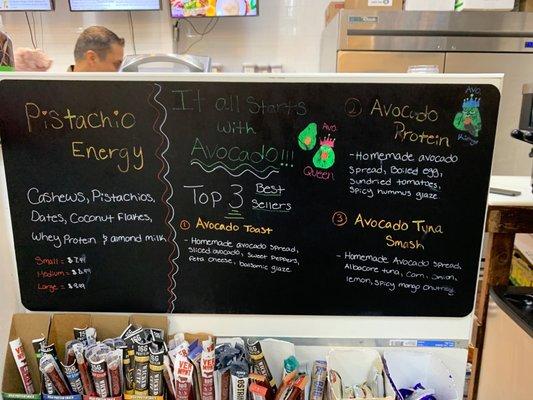 Pistachio
Energy
Cashews, Pistachios,
Dates, Coconut Flakes,
Whey Protein & almond milk
Small =
Medium =
Large =
It all Starts
with
Avocado!!!
Top 3 Best
Sellers
Avo.
Queen
① Avocado Toast
- Homemade avocado spread,
sliced avocado, sweet peppers,
feta cheese, balsamic glaze
② Avocado
Protein
Avo.
King
- Homemade avocado
Spread, Boiled egg,
Sundried tomatoes,
Spicy hummus glaze
③ Avocado Tuna
Smash
- Homemade Avocado Spread,
Albacore tuna, Corn, Onion,
lemon, Spicy mango chutney